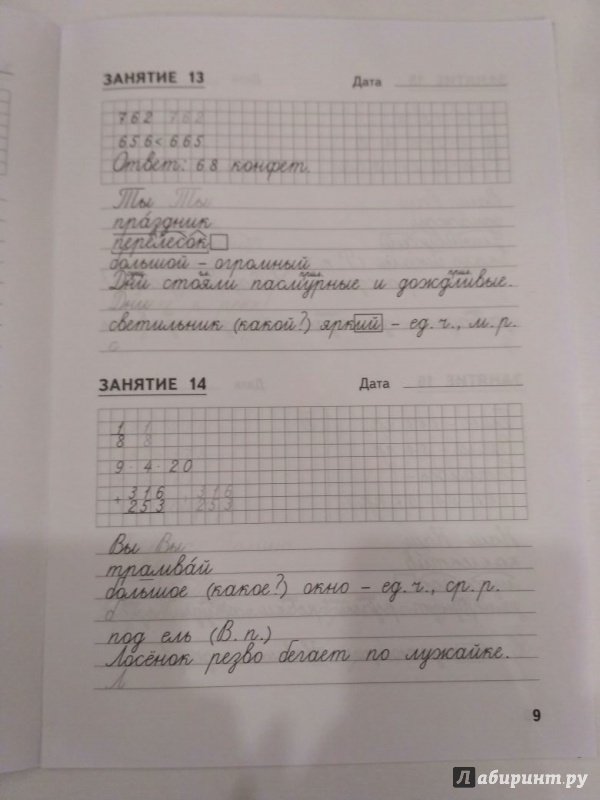 ЗАНЯТИЕ 13 Дата
762 762
656 < 665
Ответ: 68 конфет.
Ты Ты
праздник
перелесок
большой – огромный
Дни стояли пасмурные и дождливые.
Дни
светильник (какой?) яркий – ед. ч., м. р.
с
ЗАНЯТИЕ 14 Дата
1 1
8 8
9 · 4 · 20
+ 316 + 316
253 253
Вы Вы
трамвай
большое (какое?) окно – ед. ч., ср. р.
под ель (В. п.)
Лосёнок резво бегает по лужайке.
Л
9
Лабиринт.ру